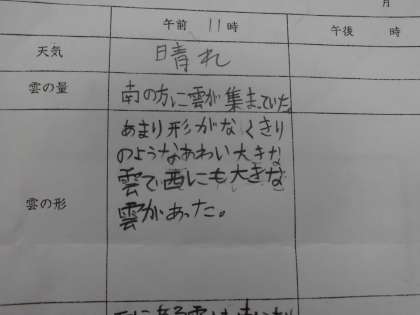 月
午前 11時 午後 時
天気 晴れ
雲の量 南の方に雲が集まっていた。
雲の形
あまり形がなくきり
のようなあわい大きな
雲で西にも大きな
雲があった。